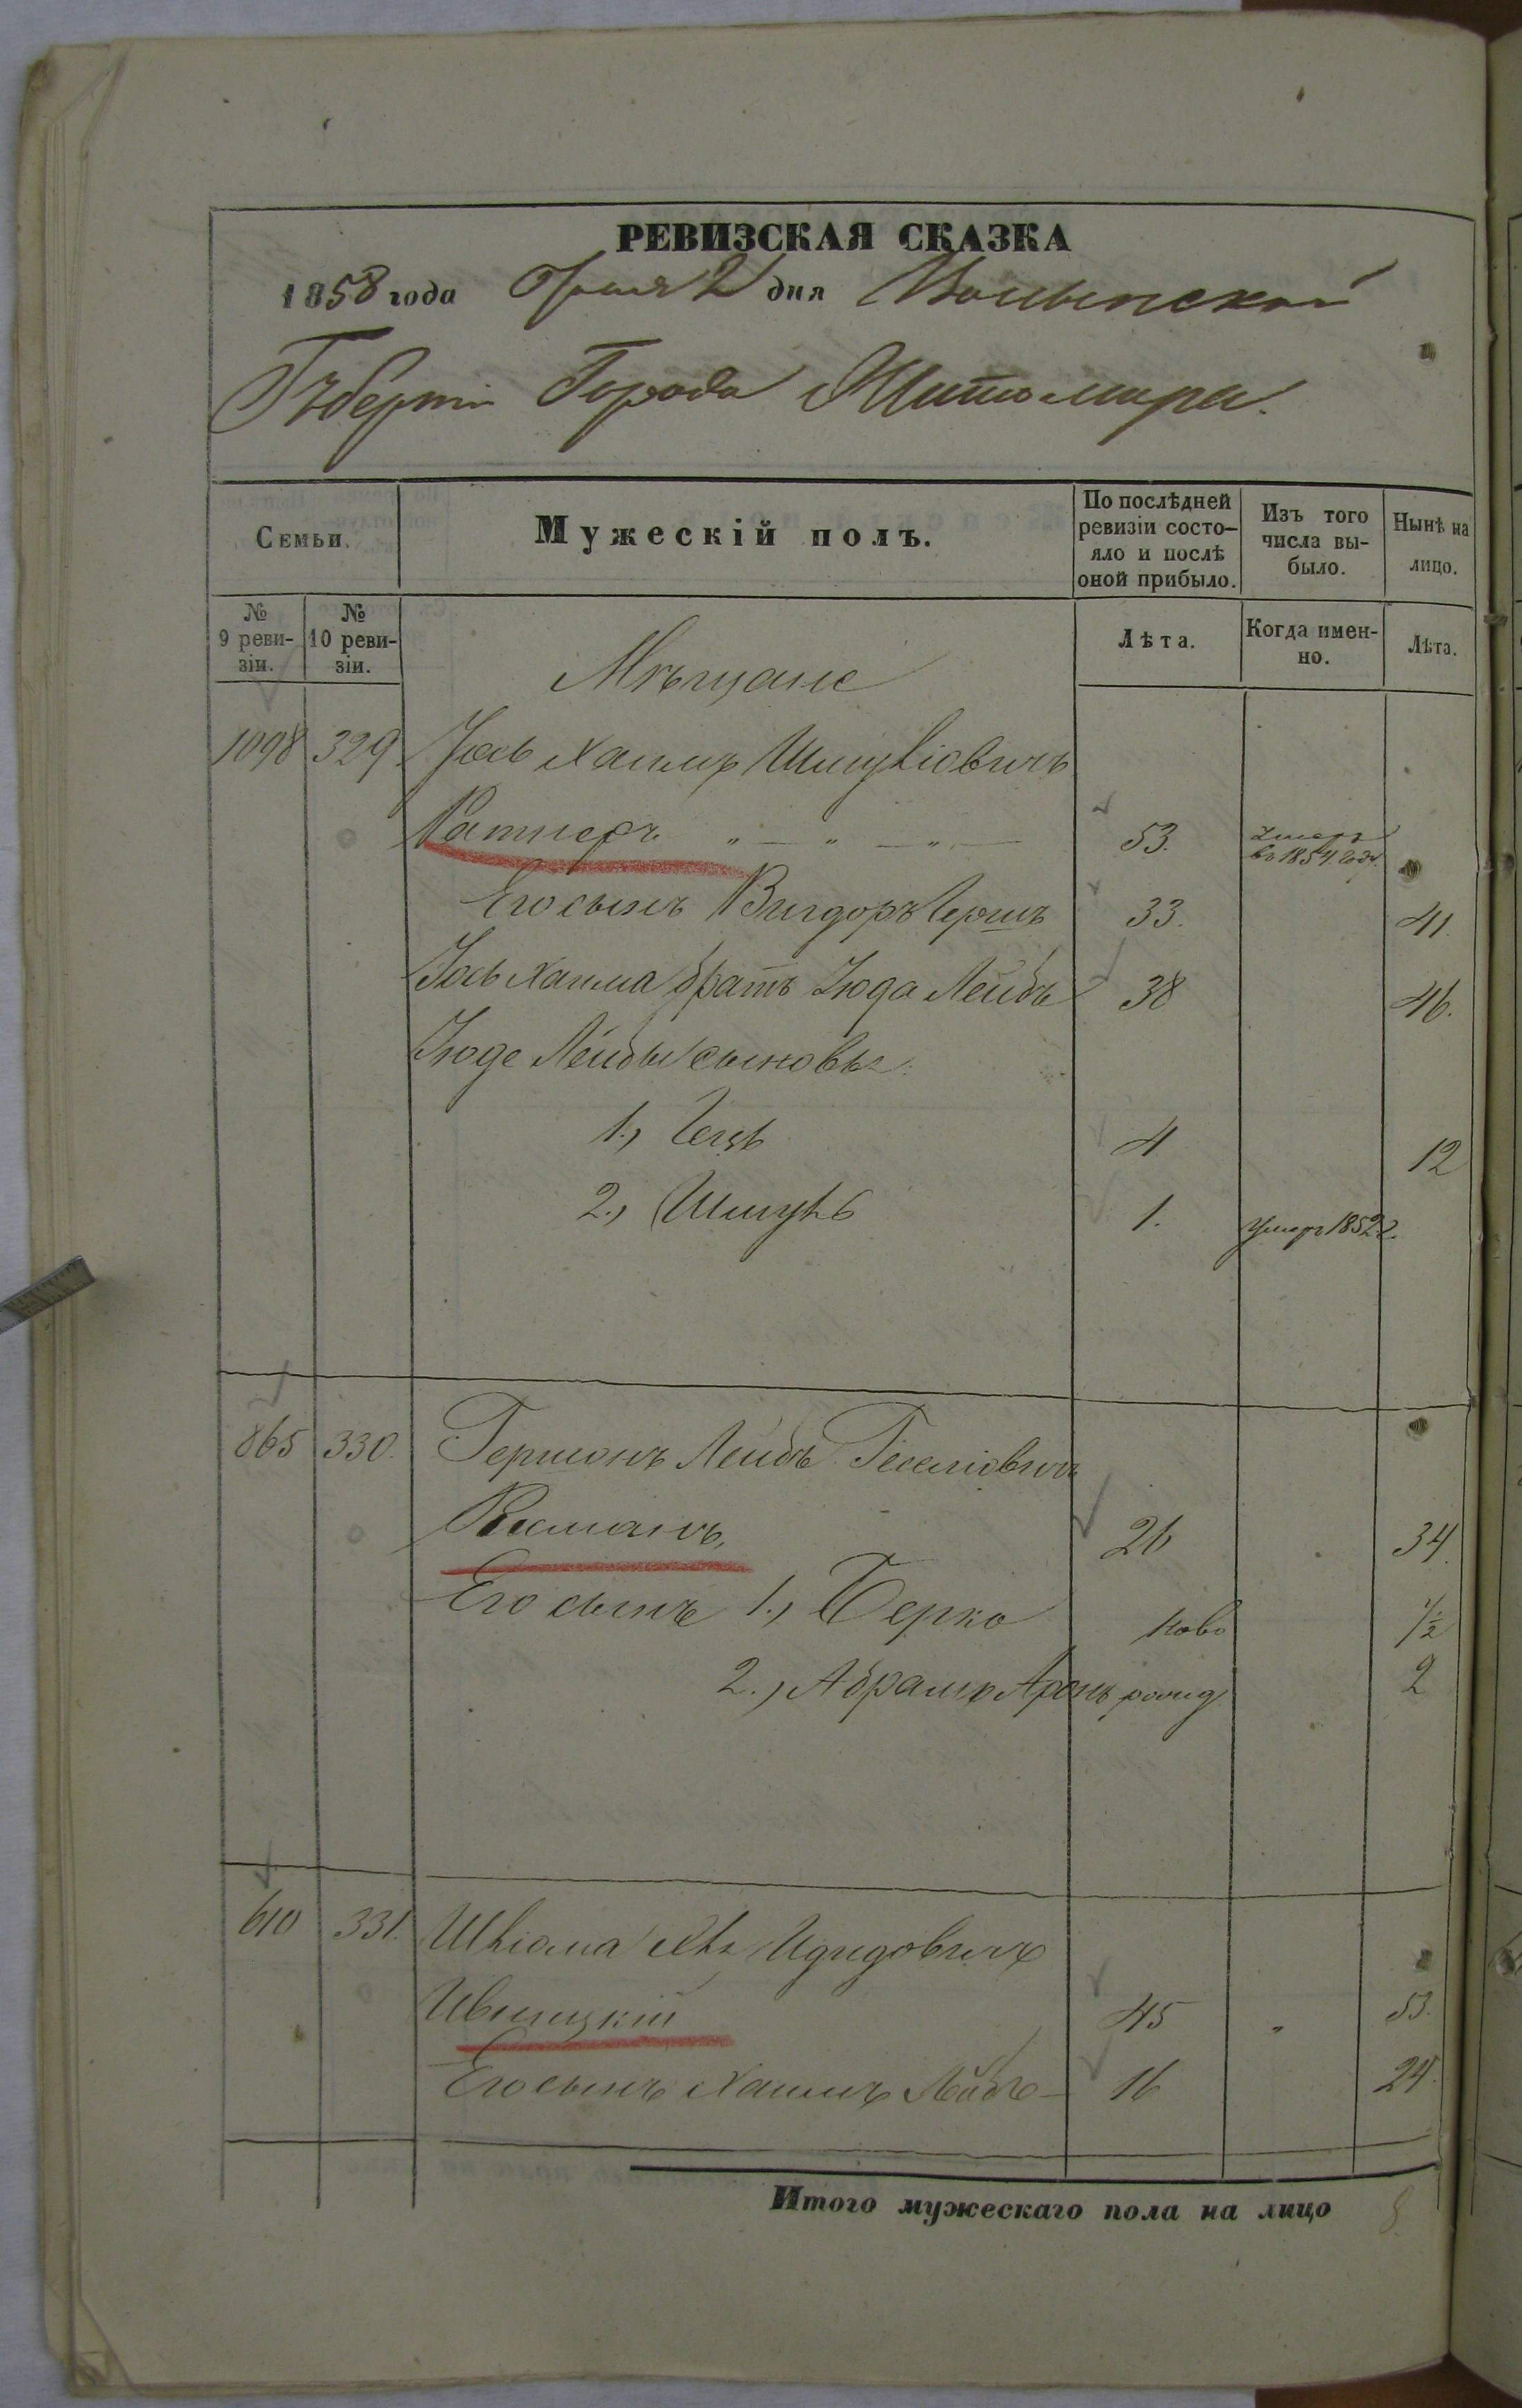 РЕВИЗСКАЯ СКАЗКА
1858 года Юня 2 дня Волынской
Губерніи Города Житомира.
Семьи.
Мужескій полъ.
По послѣдней ревизіи состо-
яло и послѣ
оной прибыло.
Изъ того
числа вы-
было.
Нынѣ на
лицо.
№
9 реви-
зіи.
№
10 реви-
зіи.
Лѣта.
Когда имен-
но.
Лѣта.
Мѣщане
1098 329 Іось Хаимъ Шмуліовичъ
Ратнеръ „ — „ — „ — 53. умеръ
въ 1854 году.
Его сынъ Вигдоръ Гершъ 33. 41.
Іось Хаима братъ Іюда Лейбъ 38 46.
Іюде Лейбы сыновья:
1., 4 12
2., Шмуль 1. умеръ 1852 г.
865 330. Гершонъ Лейбъ
26 34.
Его сынъ 1., Берко ново 1/2
2., Абрамъ Аронъ рожд. 2
610 331. Шліома
Ивницкій 45 „ 53.
Его сынъ Хаимъ Лейбъ — 16 24.
Итого мужескаго пола на лицо 8.